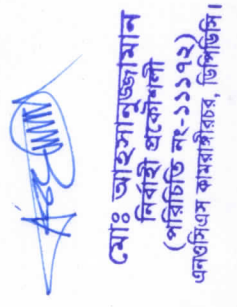 মোঃ আহসানুজ্জামান
নির্বাহী প্রকৌশলী
(পরিচিতি নং-১১১৭২)
এনওসিএস কামরাঙ্গীরচর, ডিপিডিসি।